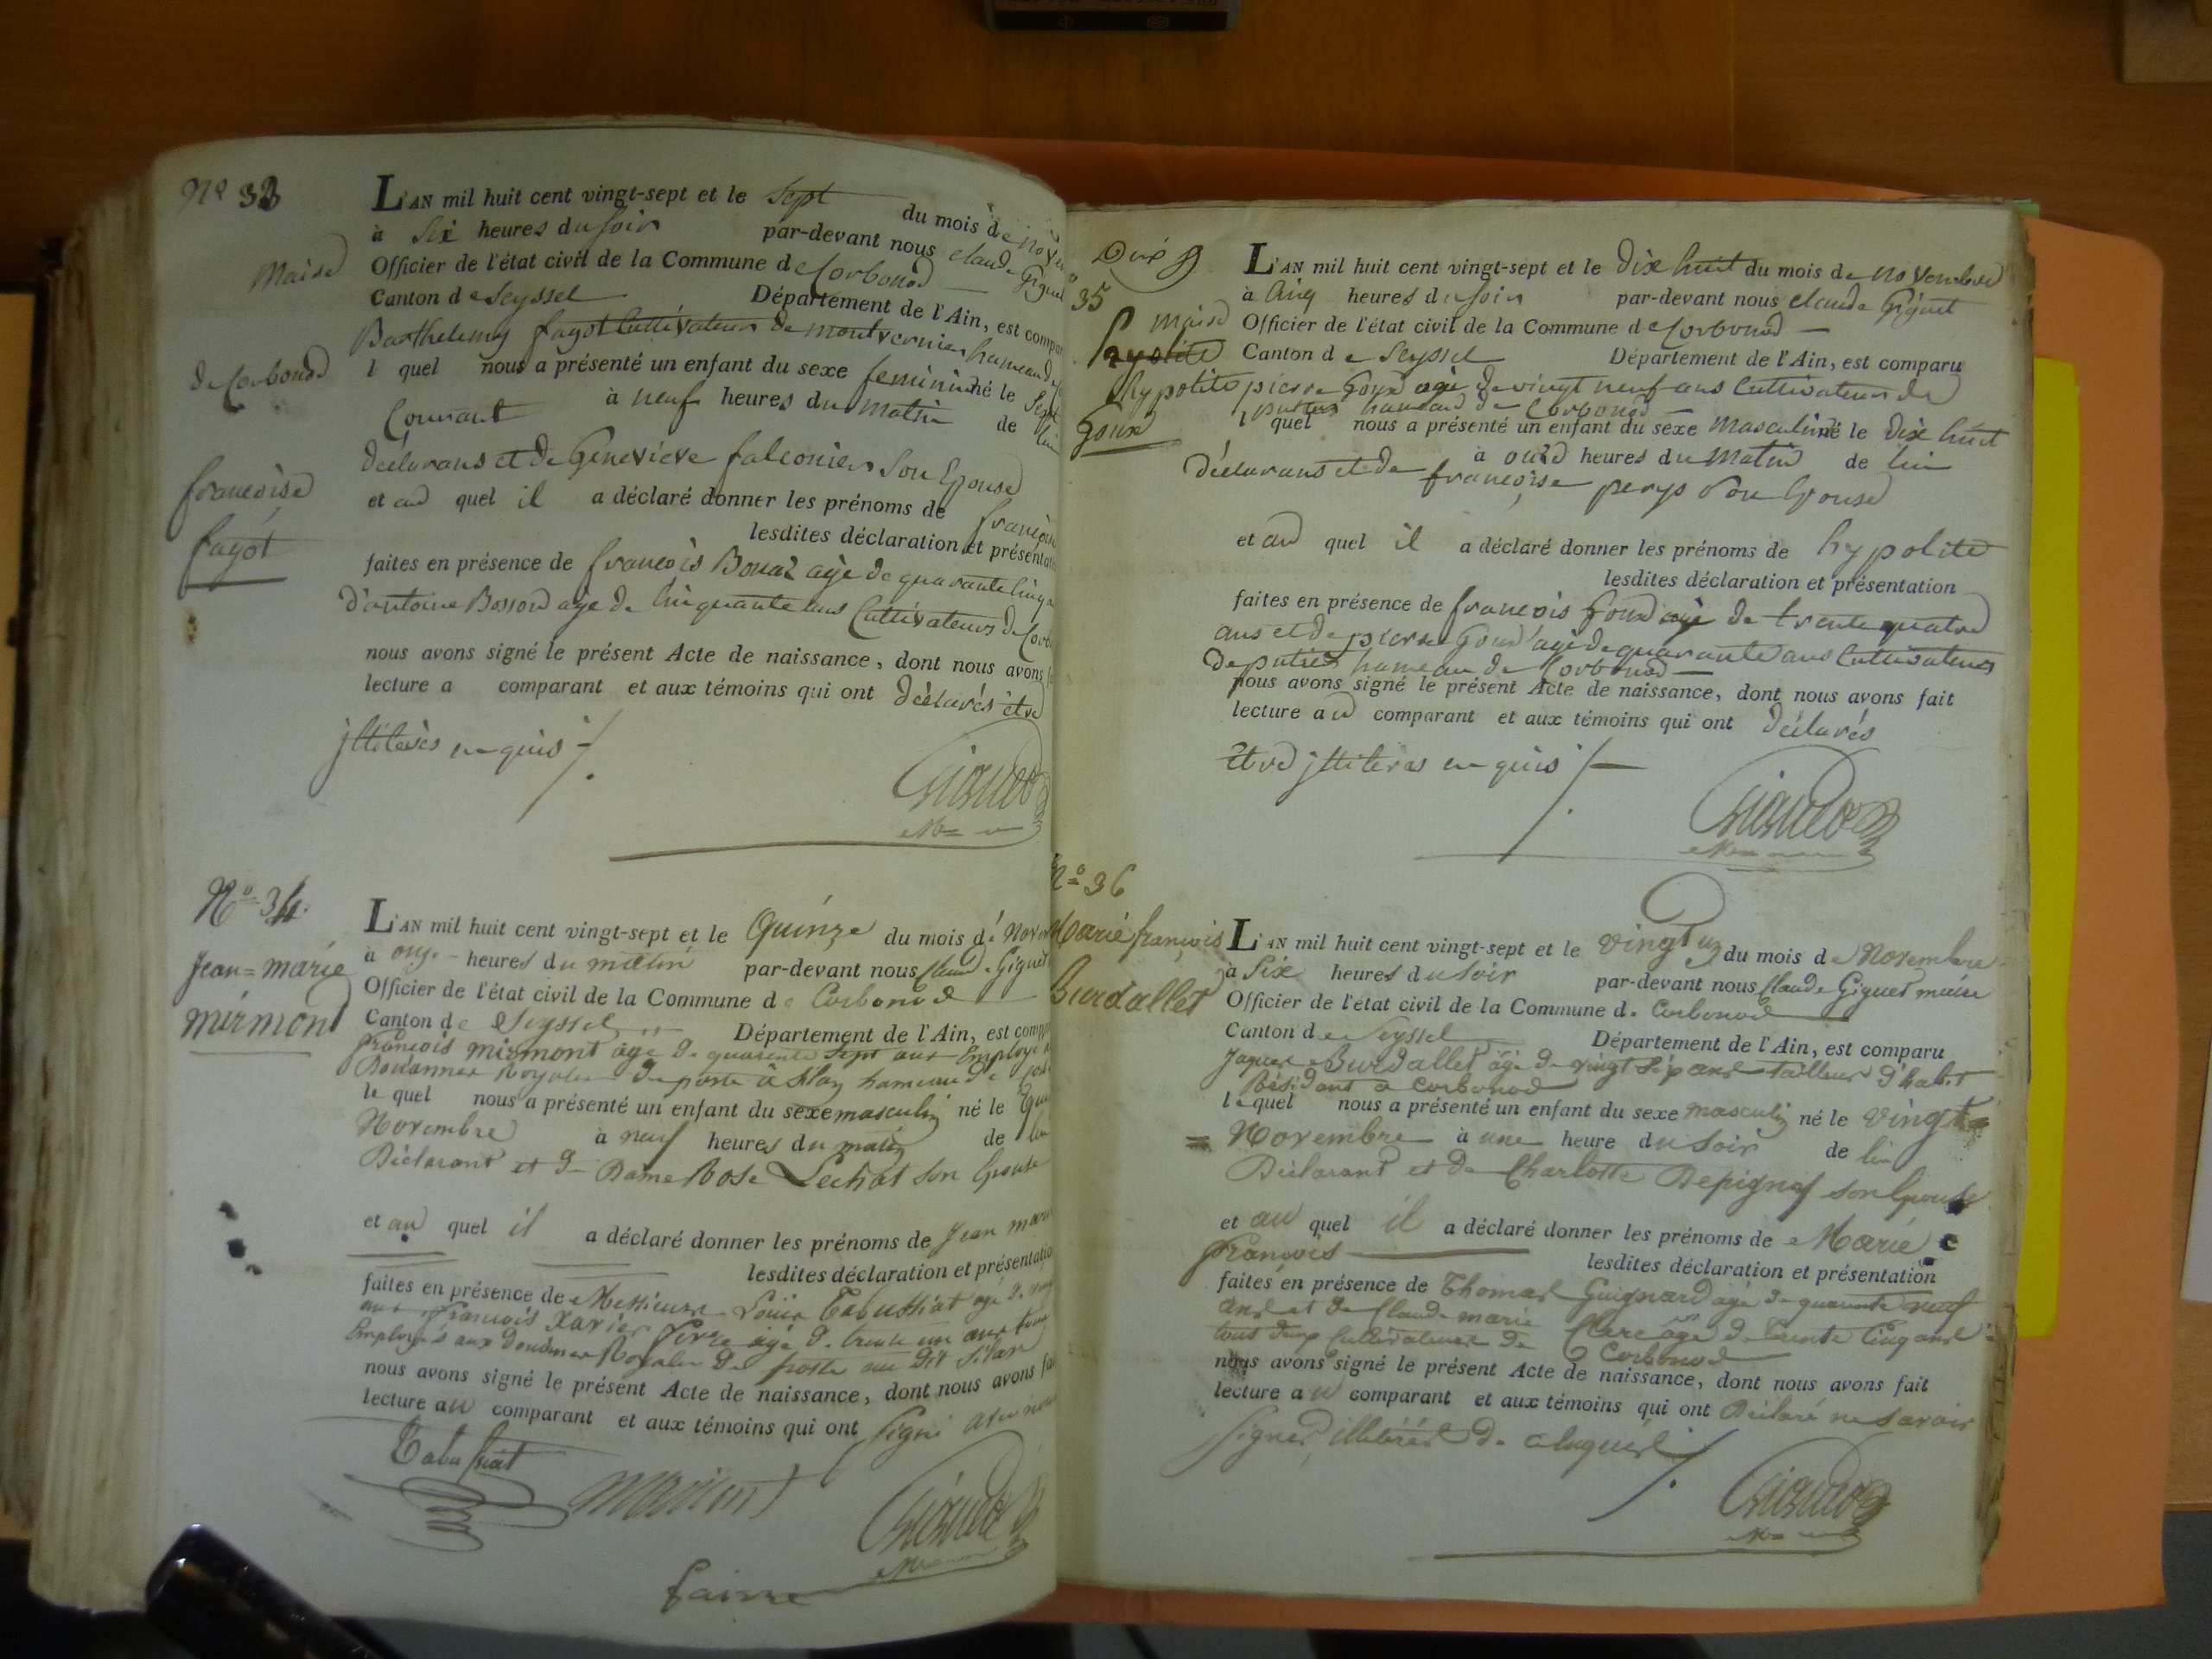 No 33
L'AN mil huit cent vingt-sept et le sept du mois de
à six heures du soir par-devant nous claude Giguet
maire
Officier de l'état civil de la Commune de Corbonod
Canton de Seyssel Département de l'Ain, est
Barthelemy fagot Cultivateur de montvernier hameau de
de Corbonod
lequel nous a présenté un enfant du sexe feminin né le sept
Courant à neuf heures du matin de lui
déclarans et de Genevieve falconier son Epouse
et au quel il a déclaré donner les prénoms de
francoise
fagot
lesdites déclaration et
faites en présence de francois Bonaz agé de quarante cinq
d'antoine Bosson age de cinquante ans Cultivateurs de
nous avons signé le présent Acte de naissance, dont nous avons
lecture a comparant et aux témoins qui ont déclarés etre
jlliterés enquis
No 34
Jean=marie
mirmont
L'AN mil huit cent vingt-sept et le Quinze du mois de
à onze heures du matin par-devant nous Claude Giguet
Officier de l'état civil de la Commune de Corbonod
Canton de Seyssel Département de l'Ain, est
françois mirmont age de quarente sept ans Employé
Douannes Royales de poste à hameau de
le quel nous a présenté un enfant du sexe masculin né le
Novembre à neuf heures du matin de lui
Déclarant et de Dame Rose Lechat son Epouse
et au quel il a déclaré donner les prénoms de Jean
lesdites déclaration et
faites en présence de Messieurs Louis Tabussiat agé de
ans françois Xavier agé de trente un ans
Employés aux douannes Royales de poste au dit
nous avons signé le présent Acte de naissance, dont nous avons
lecture au comparant et aux témoins qui ont signé avec nous
Tabussiat
faivre
35
hypolite
Goux
L'AN mil huit cent vingt-sept et le dix huit du mois de novembre
à cinq heures du soir par-devant nous claude Giguet
maire
Officier de l'état civil de la Commune de Corbonod
Canton de Seyssel Département de l'Ain, est comparu
hypolite pierre Goux agé de vingt neuf ans Cultivateur de
hameau de Corbonod
lequel nous a présenté un enfant du sexe masculin né le dix huit
à onze heures du matin de lui
déclarans et de françoise perys son Epouse
et au quel il a déclaré donner les prénoms de hypolite
lesdites déclaration et présentation
faites en présence de francois Goux agé de trente quatre
ans et de pierre Goux agé de quarante ans Cultivateurs
de hameau de Corbonod
nous avons signé le présent Acte de naissance, dont nous avons fait
lecture au comparant et aux témoins qui ont déclarés
etre jlliterés enquis
No 36
Marie françois
Burdallet
L'AN mil huit cent vingt-sept et le vingt un du mois de Novembre
à six heures du soir par-devant nous Claude Giguet maire
Officier de l'état civil de la Commune de Corbonod
Canton de Seyssel Département de l'Ain, est comparu
Jaques Burdallet agé de vingt sept ans tailleur d'habit
résidant a Corbonod
lequel nous a présenté un enfant du sexe masculin né le vingt
Novembre à une heure du soir de lui
Déclarant et de Charlotte Depigny son Epouse
et au quel il a déclaré donner les prénoms de Marie
françois
lesdites déclaration et présentation
faites en présence de Thomas Guignard agé de quarente neuf
ans et de Claude marie Clerc agé de trente Cinq ans
tous deux Cultivateurs de Corbonod
nous avons signé le présent Acte de naissance, dont nous avons fait
lecture au comparant et aux témoins qui ont Déclaré ne savoir
signer illitérés de